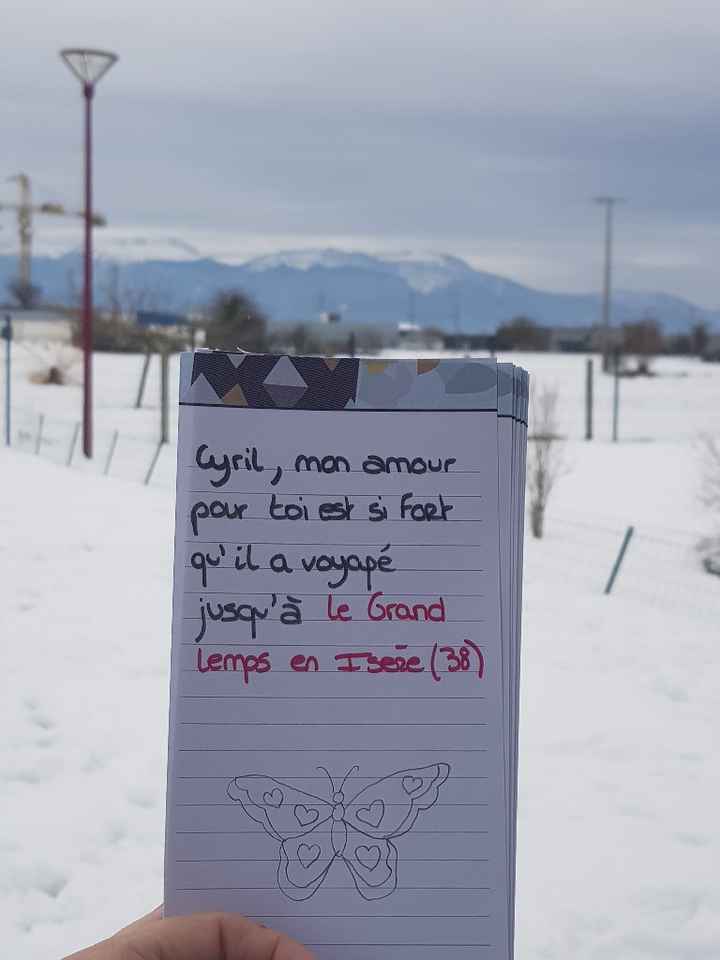 Cyril, mon amour
pour toi est si fort
qu'il a voyagé
jusqu'à le Grand
Lemps en Isère (38)